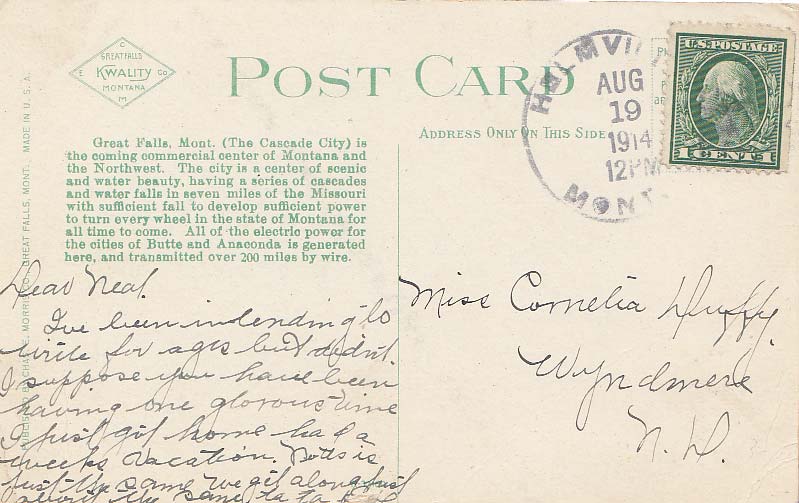 C
GREAT FALLS
E KWALITY Co
MONTANA
M
POST CARD
ADDRESS ONLY ON THIS SIDE
HELMVIL
AUG
19
1914
12PM
MONT.
U.S. POSTAGE
1 CENT 1
Great Falls, Mont. (The Cascade City) is
the coming commercial center of Montana and
the Northwest. The city is a center of scenic
and water beauty, having a series of cascades
and water falls in seven miles of the Missouri
with sufficient fall to develop sufficient power
to turn every wheel in the state of Montana for
all time to come. All of the electric power for
the cities of Butte and Anaconda is generated
here, and transmitted over 200 miles by wire.
MORRIS CO. GREAT FALLS, MONT. MADE IN U.S.A.
Dear Neal.
I've been intending to
write for ages but didn't.
I suppose you have been
having one glorous time
I just got home had a
weeks vacation. is
just the same we get along just
about the same ta ta
Miss Cornelia Duffy.
Wyndmere
N. D.